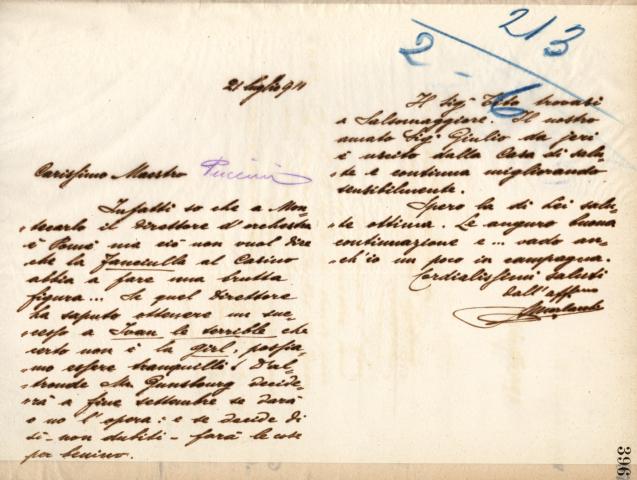 21 luglio 911
Carissimo Maestro Puccini
Infatti so che a Mon-
-tecarlo il Direttore d'orchestra
è Pomé ma ciò non vuol dire
che la Fanciulla al Casino
abbia a fare una brutta
figura... Se quel Direttore
ha saputo ottenere un suc-
-cesso a Ivan le terrible che
certo non è la Girl, possia-
-mo essere tranquelli! D'al-
-tronde Mr. Gunsbourg decide-
-rà a fine settembre se darà
o no l'opera: e se decide di
sì - non dubiti - farà le cose
per benino.
213
2 - 6
Il Sig. Tito trovasi
a Salsomaggiore. Il nostro
amato Sig. Giulio da jeri
è uscito dalla Casa di salu-
-te e continua migliorando
sensibilmente.
Spero la di Lei salu-
-te ottima. Le auguro buona
continuazione e... vado an-
-ch'io un poco in campagna.
Cordialissimi saluti
dall'affmo
396